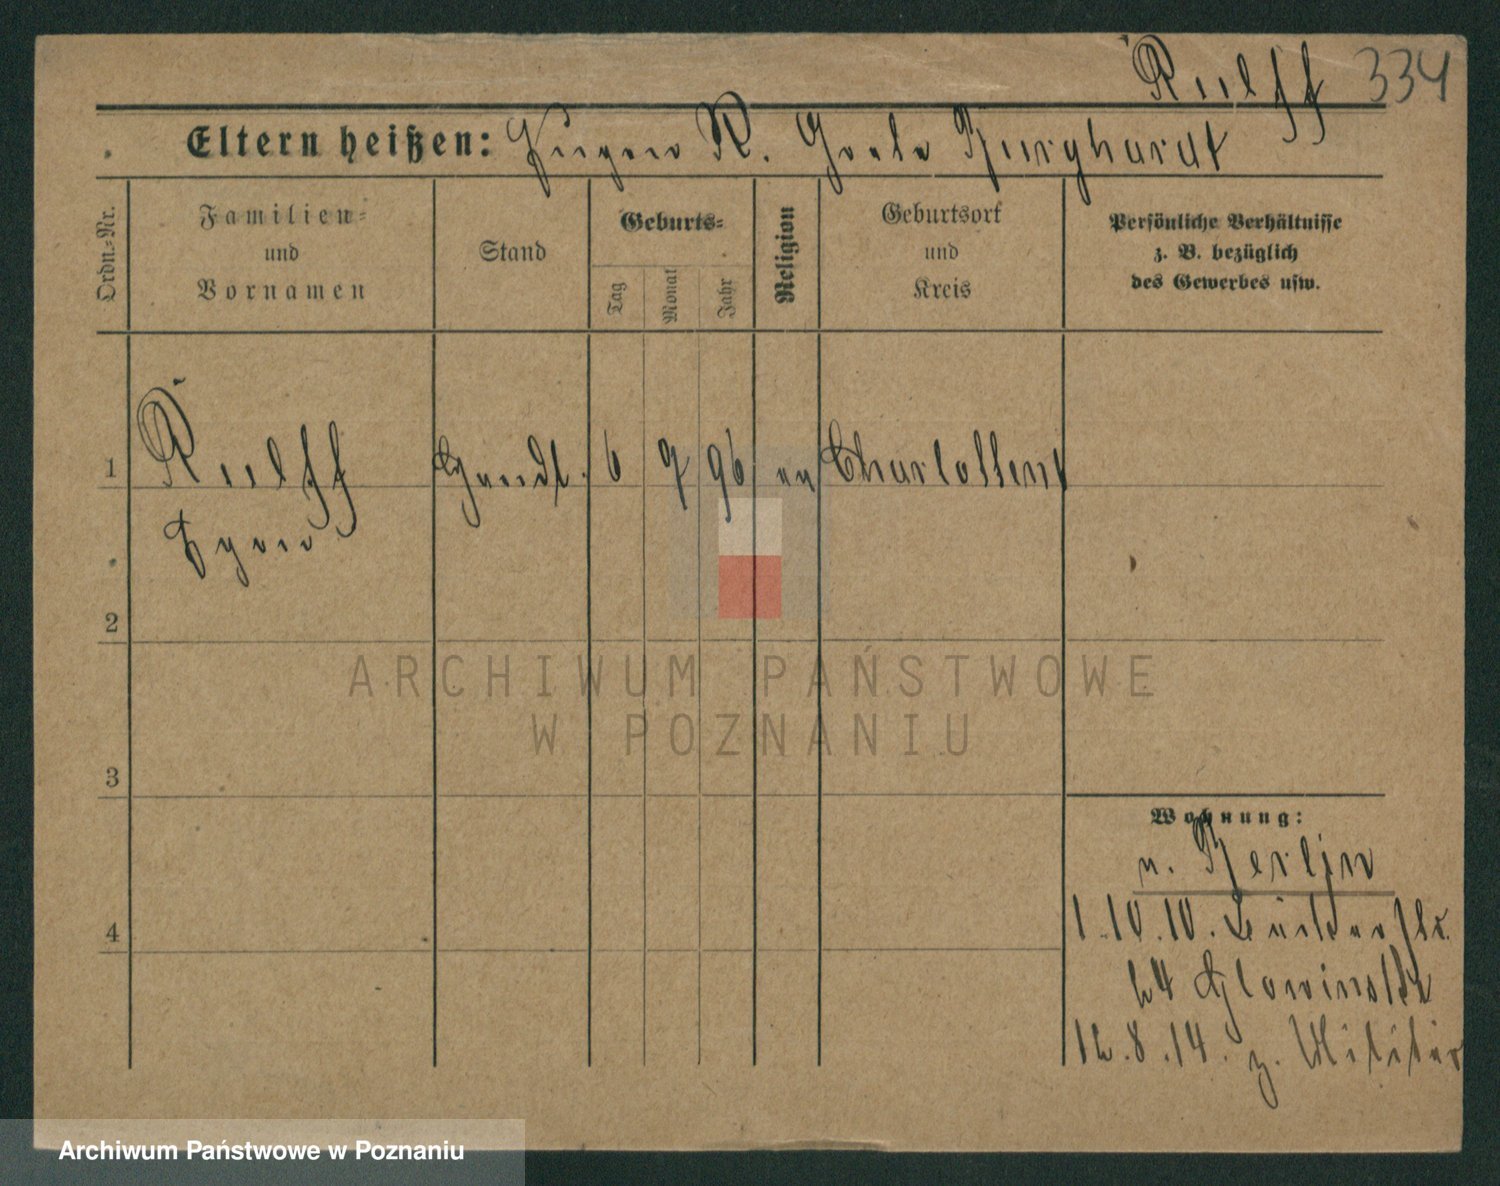 Rulff 334
Eltern heißen: Eugen R. Burghardt
Ordn.-Nr.
Familien-
und
Vornamen
Stand
Geburts-
Tag
Monat
Jahr
Religion
Geburtsort
und
Kreis
Persönliche Verhältnisse
z. B. bezüglich
des Gewerbes usw.
1 Rulff 6 9 96 Charlottenb
Egon
2
3
4
ARCHIWUM PAŃSTWOWE
W POZNANIU
Wohnung:
v. Berlin
1.10.10.
24 Glowinski
12.8.14. z. Militär
Archiwum Państwowe w Poznaniu